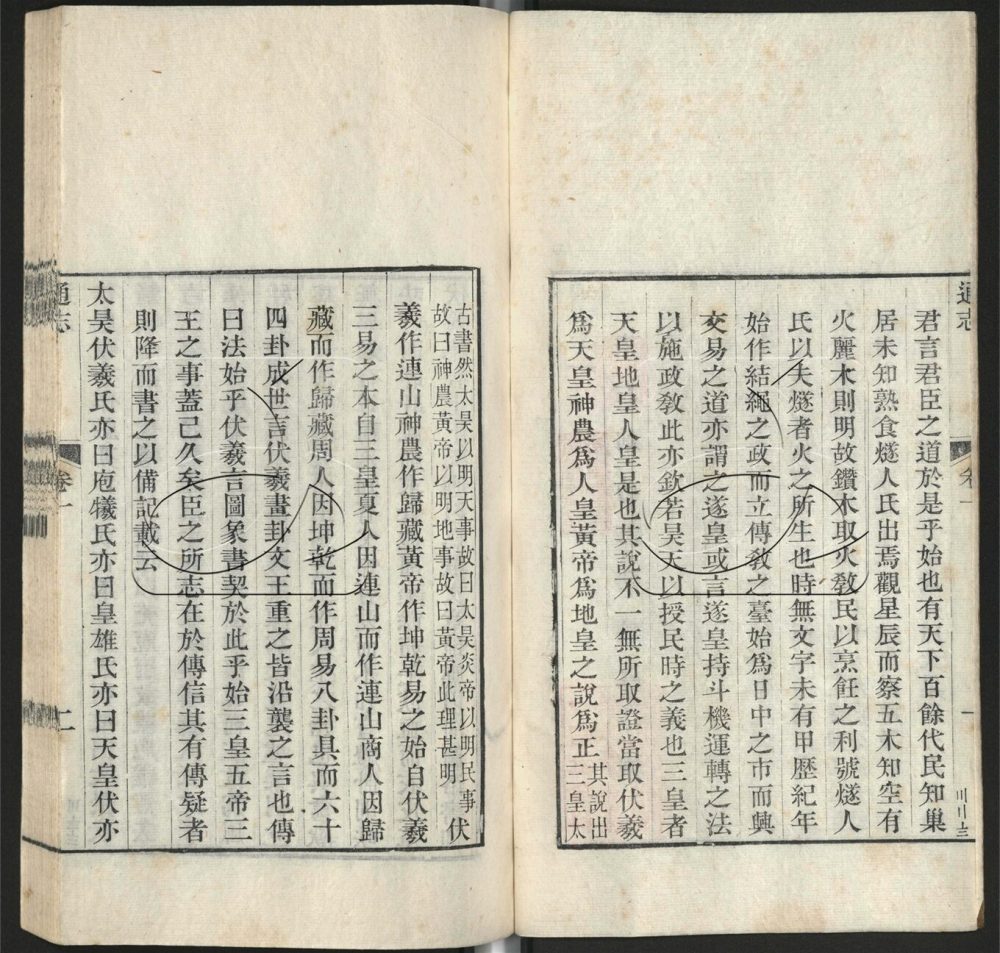 通志
卷一
一
君言君臣之道於是乎始也有天下百餘代民知巢
居未知熟食燧人氏出焉觀星辰而察五木知空有
火麗木則明故鑽木取火敎民以烹飪之利號燧人
氏以夫燧者火之所生也時無文字未有甲歷紀年
始作結繩之政而立傳敎之臺始爲日中之市而興
交易之道亦謂之遂皇或言遂皇持斗機運轉之法
以施政敎此亦欽若昊天以授民時之義也三皇者
天皇地皇人皇是也其說不一無所取證當取伏羲
爲天皇神農爲人皇黃帝爲地皇之說爲正其說出
三皇太
古書然太昊以明天事故曰太昊炎帝以明民事
故曰神農黃帝以明地事故曰黃帝此理甚明
伏
羲作連山神農作歸藏黃帝作坤乾易之始自伏羲
三易之本自三皇夏人因連山而作連山商人因歸
藏而作歸藏周人因坤乾而作周易八卦具而六十
四卦成世言伏羲畫卦文王重之皆沿襲之言也傳
曰法始乎伏羲言圖象書契於此乎始三皇五帝三
王之事蓋已久矣臣之所志在於傳信其有傳疑者
則降而書之以備記載云
太昊伏羲氏亦曰庖犧氏亦曰皇雄氏亦曰天皇伏亦
通志
卷一
二